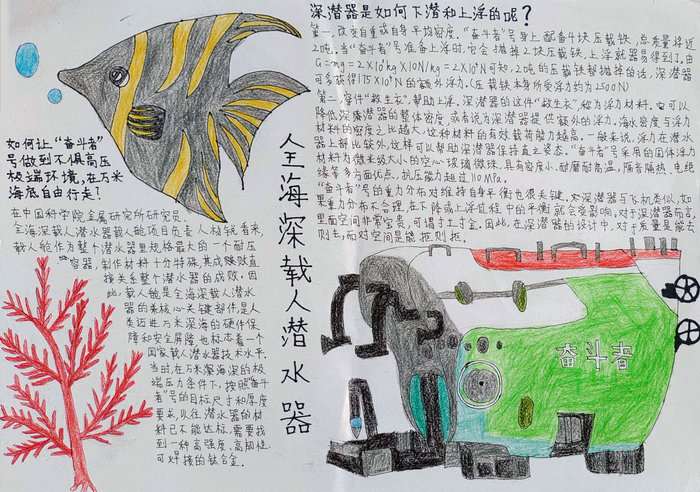 深潜器是如何下潜和上浮的呢？
第一,改变自重或自身平均密度。"奋斗者"号身上配备4块压载铁,总质量将近
2吨。当"奋斗者"号准备上浮时,它会抛掉2块压载铁,上浮就容易得到了。由
G=mg=2X10³kgX10N/kg=2X10⁴N可知,2吨的压载铁都抛掉的话,深潜器
可多获得175X10⁴N的额外浮力。(压载铁本身所受浮力约为2500N)
第二,穿件"救生衣"帮助上浮。深潜器的这件"救生衣",称为浮力材料。它可以
降低深潜器的整体密度,或者说为深潜器提供额外的浮力。海水密度与浮力
材料的密度之比越大,这种材料的有效载荷能力越高。一般来说,浮力在潜水
器上部比较外,这样可以帮助深潜器保持直立姿态。"奋斗者"号采用的固体浮力
材料为微米级大小的空心玻璃微珠,具有密度小、耐磨耐高温,隔音隔热、电绝
缘等多方面优点。抗压能力超过110MPa。
"奋斗者"号的重力分布对维持自身平衡也很关键,深潜器与飞机类似,如
果重力分布不合理,在下降或上浮过程中的平衡就会受影响,对于深潜器而言,
里面空间非常宝贵,可谓寸土寸金。因此,在深潜器的设计中,对于质量是能去
则去,而对空间是能抠则抠。
如何让"奋斗者"
号做到不惧高压
极端环境,在万米
海底自由行走？
在中国科学院金属研究所研究员.
全海深载人潜水器载人舱项目负责人杨锐看来,
载人舱作为整个潜水器里规格最大的一个耐压
容器,制作材料十分特殊,其成败更直
接关系整个潜水器的成败,因
此,载人舱是全海深载人潜水
器的来核心关键部件,是人
类迈进万米深海的硬件保
障和安全屏障,也标志着一个
国家载人潜水器技术水平.
当时,在万米深海深的极
端压力条件下,按照"奋斗
者"号的目标尺寸和厚度
要求,以往潜水器的材
料已不能达标,需要找
到一种高强度、高韧性
可焊接的钛合金.
全海深载人潜水器
奋斗者